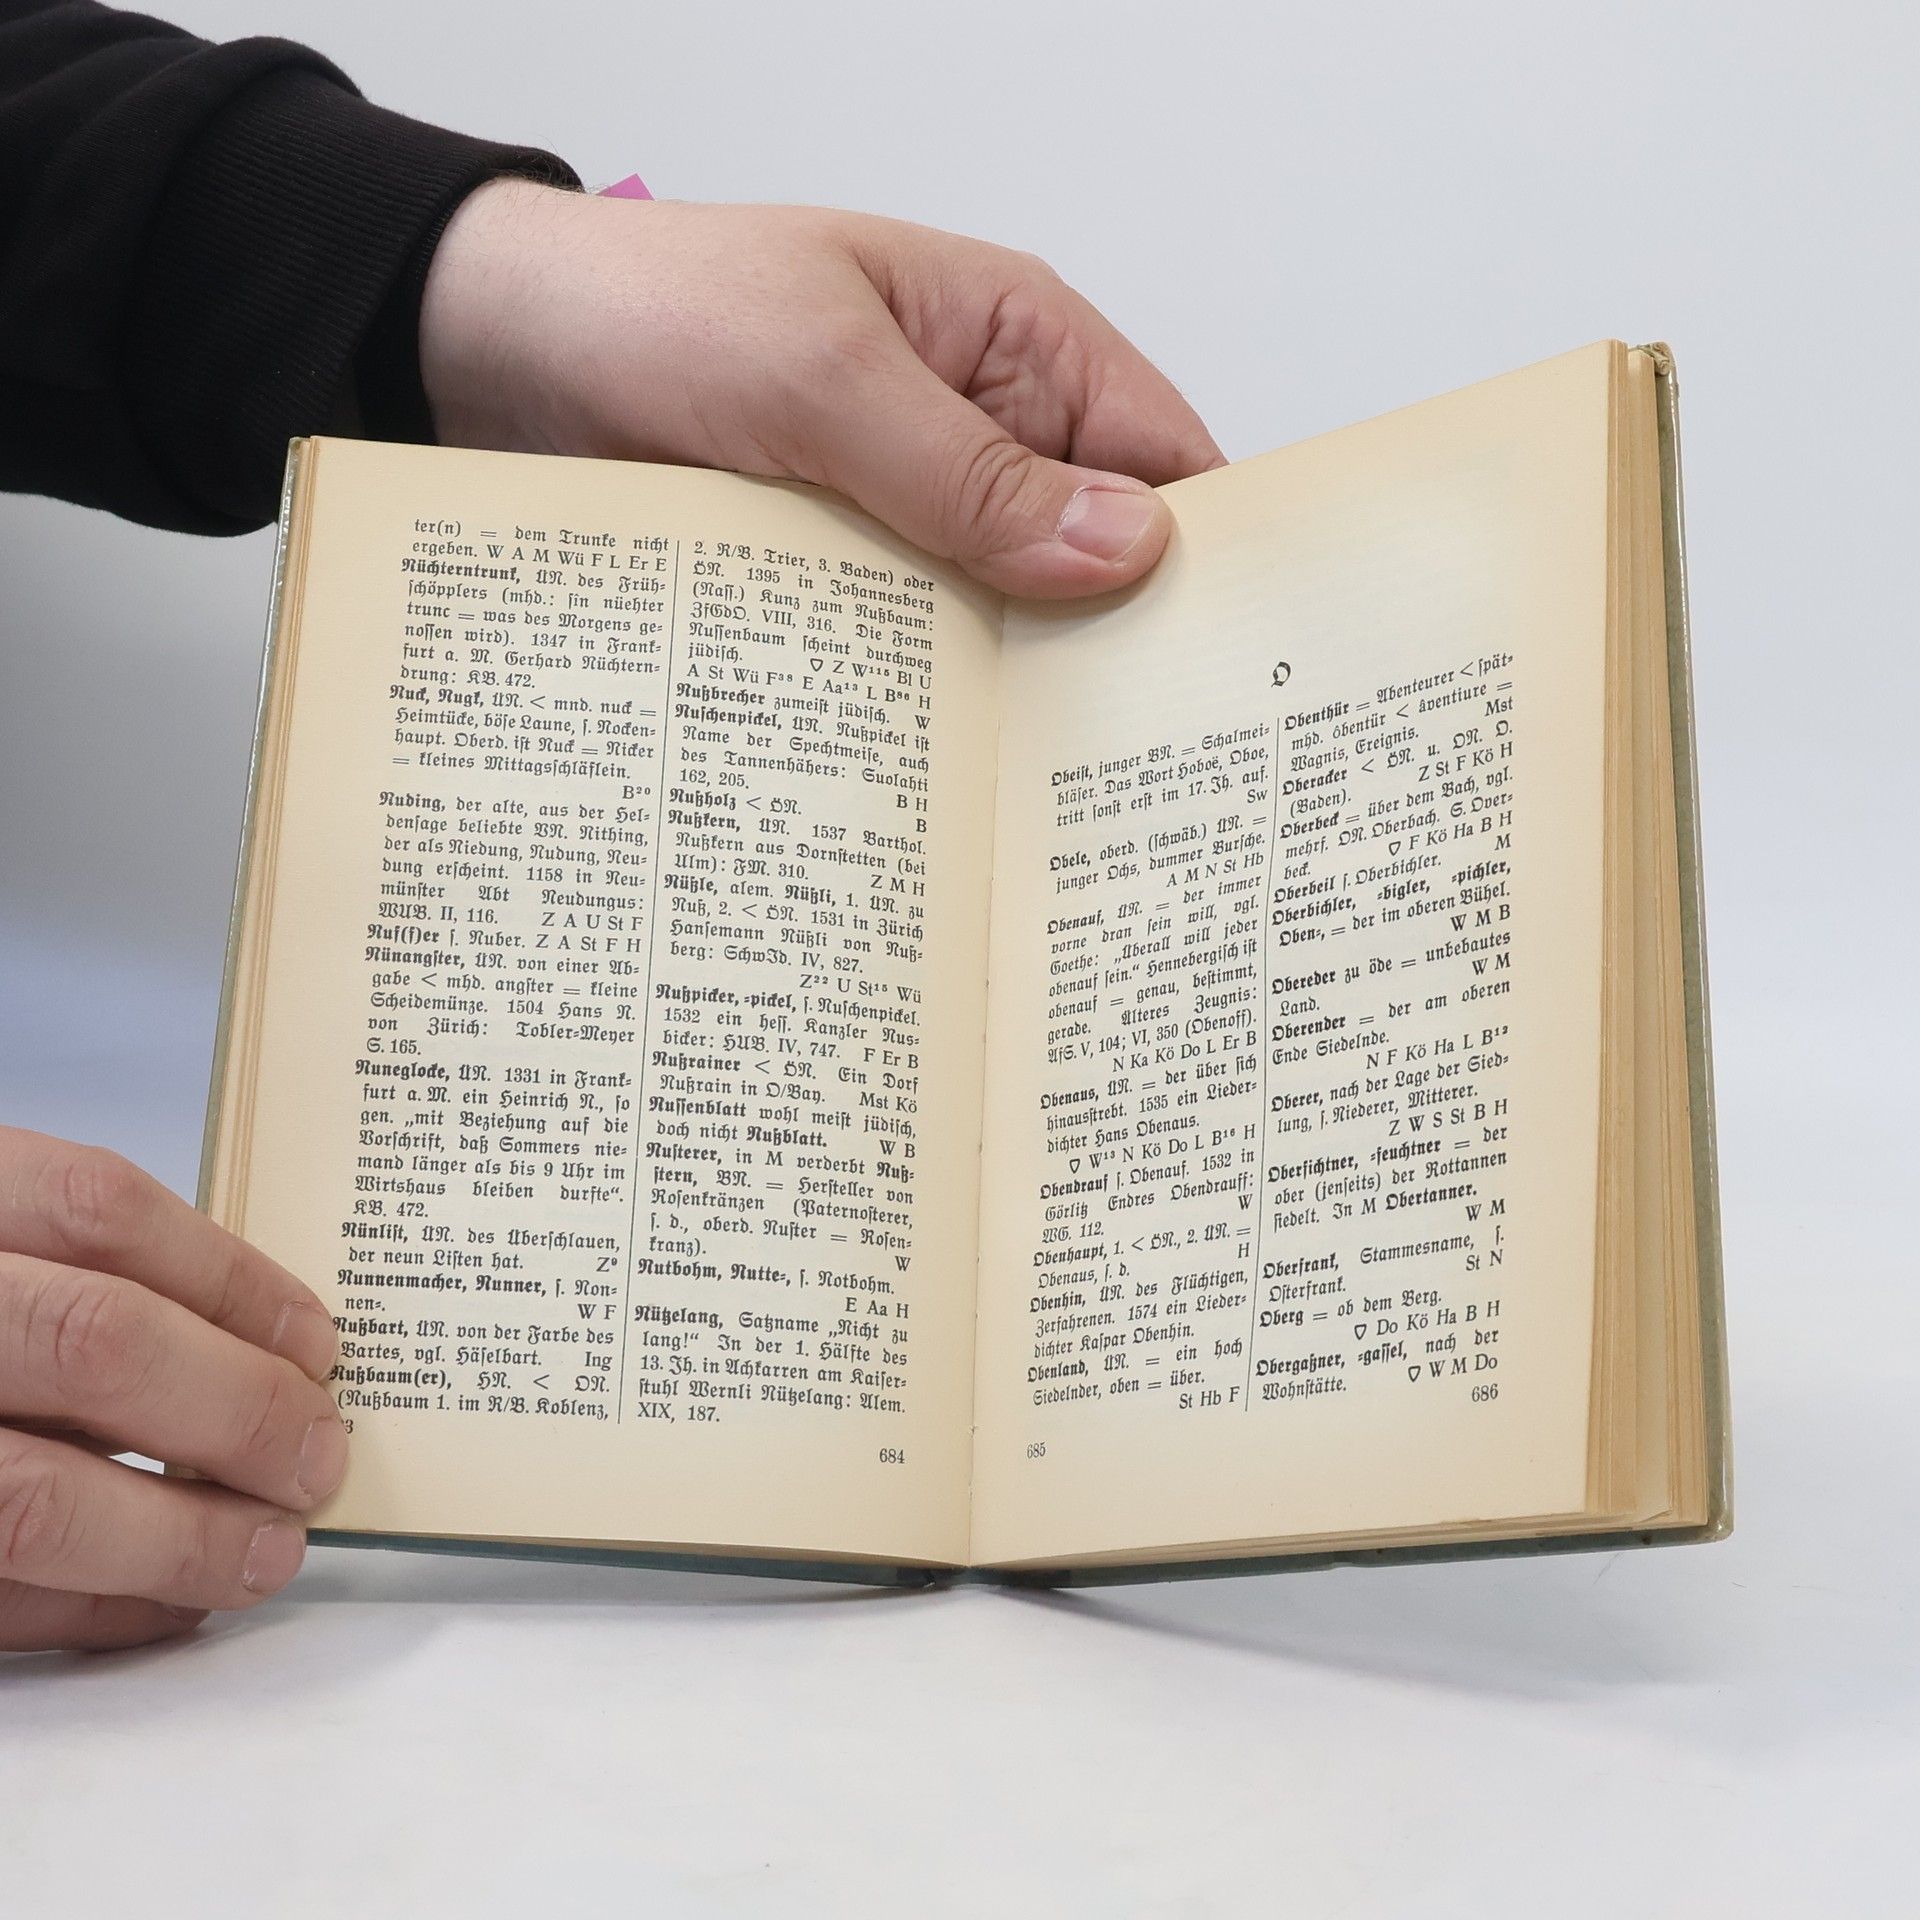 ter(n) = dem Trunke nicht
ergeben. W A M Wü F L Er E
Nüchterntrunk, ÜN. des Früh-
schöpplers (mhd.: sîn nüehter
trunc = was des Morgens ge-
nossen wird). 1347 in Frank-
furt a. M. Gerhard Nüchtern-
drung: KB. 472.
Nuck, Nugk, ÜN. < mnd. nuck =
Heimtücke, böse Laune, s. Nocken-
haupt. Oberd. ist Nuck = Nicker
= kleines Mittagsschläflein.
B²⁰
Nuding, der alte, aus der Hel-
densage beliebte VN. Nithing,
der als Niedung, Nudung, Neu-
dung erscheint. 1158 in Neu-
münster Abt Neudungus:
WUB. II, 116. Z A U St F
Nuf(f)er s. Nuber. Z A St F H
Nünangster, ÜN. von einer Ab-
gabe < mhd. angster = kleine
Scheidemünze. 1504 Hans N.
von Zürich: Tobler-Meyer
S. 165.
Nuneglocke, ÜN. 1331 in Frank-
furt a. M. ein Heinrich N., so
gen. „mit Beziehung auf die
Vorschrift, daß Sommers nie-
mand länger als bis 9 Uhr im
Wirtshaus bleiben durfte“.
KB. 472.
Nünlist, ÜN. des Überschlauen,
der neun Listen hat. Z⁹
Nunnenmacher, Nunner, s. Non-
nen-. W F
Nußbart, ÜN. von der Farbe des
Bartes, vgl. Häselbart. Ing
Nußbaum(er), HN. < ON.
(Nußbaum 1. im R/B. Koblenz,
2. R/B. Trier, 3. Baden) oder
ÖN. 1395 in Johannesberg
(Nass.) Kunz zum Nußbaum:
ZfGdO. VIII, 316. Die Form
Nussenbaum scheint durchweg
jüdisch. ▽ Z W¹¹⁵ Bl U
A St Wü F³⁸ E Aa¹³ L B⁸⁶ H
Nußbrecher zumeist jüdisch. W
Nuschenpickel, ÜN. Nußpickel ist
Name der Spechtmeise, auch
des Tannenhähers: Suolahti
162, 205. B H
Nußholz < ÖN. B
Nußkern, ÜN. 1537 Barthol.
Nußkern aus Dornstetten (bei
Ulm): FM. 310. Z M H
Nüßle, alem. Nüßli, 1. ÜN. zu
Nuß, 2. < ÖN. 1531 in Zürich
Hansemann Nüßli von Nuß-
berg: SchwId. IV, 827.
Z²² U St¹⁵ Wü
Nußpicker, -pickel, s. Nuschenpickel.
1532 ein hess. Kanzler Nus-
bicker: HUB. IV, 747. F Er B
Nußrainer < ÖN. Ein Dorf
Nußrain in O/Bay. Mst Kö
Nussenblatt wohl meist jüdisch,
doch nicht Nußblatt. W B
Nusterer, in M verderbt Nuß-
stern, BN. = Hersteller von
Rosenkränzen (Paternosterer,
s. d., oberd. Nuster = Rosen-
kranz). W
Nutbohm, Nutte-, s. Notbohm.
E Aa H
Nützelang, Satzname „Nicht zu
lang!“ In der 1. Hälfte des
13. Jh. in Achkarren am Kaiser-
stuhl Wernli Nützelang: Alem.
XIX, 187.
684
O
Obeist, junger BN. = Schalmei-
bläser. Das Wort Hoboë, Oboe,
tritt sonst erst im 17. Jh. auf.
Sw
Obele, oberd. (schwäb.) ÜN. =
junger Ochs, dummer Bursche.
A M N St Hb
Obenauf, ÜN. = der immer
vorne dran sein will, vgl.
Goethe: „Überall will jeder
obenauf sein.“ Hennebergisch ist
obenauf = genau, bestimmt,
gerade. Älteres Zeugnis:
AfS. V, 104; VI, 350 (Obenoff).
N Ka Kö Do L Er B
Obenaus, ÜN. = der über sich
hinausstrebt. 1535 ein Lieder-
dichter Hans Obenaus.
▽ W¹³ N Kö Do L B¹⁶ H
Obendrauf s. Obenauf. 1532 in
Görlitz Endres Obendrauff:
WG. 112. W
Obenhaupt, 1. < ÖN., 2. ÜN. =
Obenaus, s. d. H
Obenhin, ÜN. des Flüchtigen,
Zerfahrenen. 1574 ein Lieder-
dichter Kaspar Obenhin.
Obenland, ÜN. = ein hoch
Siedelnder, oben = über.
St Hb F
685
Obenthür = Abenteurer < spät-
mhd. ôbentür < âventiure =
Wagnis, Ereignis. Mst
Oberacker < ÖN. u. ON. O.
(Baden). Z St F Kö H
Oberbeck = über dem Bach, vgl.
mehrf. ON. Oberbach. S. Over-
beck. ▽ F Kö Ha B H
Oberbeil s. Oberbichler. M
Oberbichler, -bigler, -pichler,
Oben-, = der im oberen Bühel.
W M B
Obereder zu öde = unbebautes
Land. W M
Oberender = der am oberen
Ende Siedelnde.
N F Kö Ha L B¹²
Oberer, nach der Lage der Sied-
lung, s. Niederer, Mitterer.
Z W S St B H
Oberfichtner, -feuchtner = der
ober (jenseits) der Rottannen
siedelt. In M Obertanner.
W M
Oberfrank, Stammesname, s.
Osterfrank. St N
Oberg = ob dem Berg.
▽ Do Kö Ha B H
Obergaßner, -gassel, nach der
Wohnstätte. ▽ W M Do
686